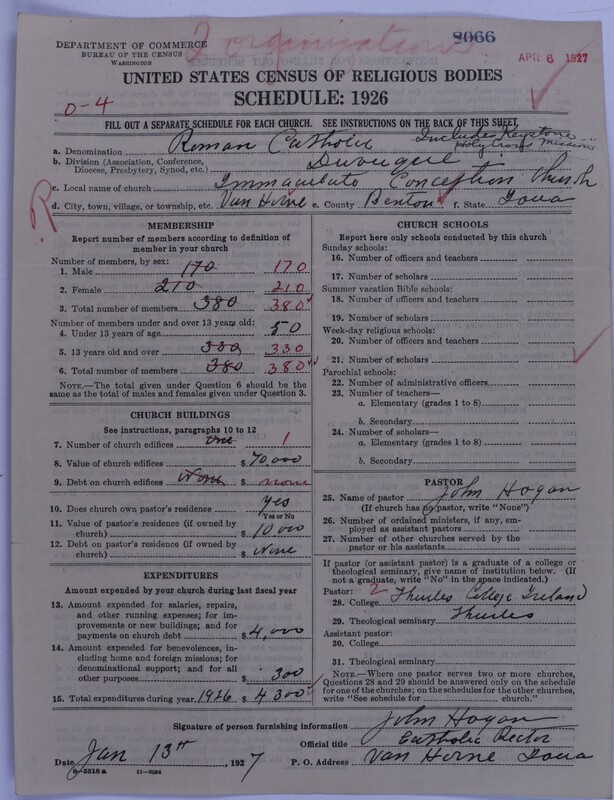 2 organizations
8066
APR 6 1927
DEPARTMENT OF COMMERCE
BUREAU OF THE CENSUS
WASHINGTON
UNITED STATES CENSUS OF RELIGIOUS BODIES
SCHEDULE: 1926
0-4
FILL OUT A SEPARATE SCHEDULE FOR EACH CHURCH. SEE INSTRUCTIONS ON THE BACK OF THIS SHEET.
a. Denomination Roman Catholic Includes Keystone Holy Cross Mission
b. Division (Association, Conference, Diocese, Presbytery, Synod, etc.) Dubuque
c. Local name of church Immaculate Conception Church
R
d. City, town, village, or township, etc. Van Horne e. County Benton f. State Iowa
MEMBERSHIP
Report number of members according to definition of member in your church
Number of members, by sex:
1. Male 170 170
2. Female 210 210
3. Total number of members 380 380
Number of members under and over 13 years old:
4. Under 13 years of age 50
5. 13 years old and over 330 330
6. Total number of members 380 380
NOTE.—The total given under Question 6 should be the same as the total of males and females given under Question 3.
CHURCH BUILDINGS
See instructions, paragraphs 10 to 12
7. Number of church edifices One 1
8. Value of church edifices $ 70,000
9. Debt on church edifices None $ none
10. Does church own pastor's residence Yes
Yes or No
11. Value of pastor's residence (if owned by church) $ 10,000
12. Debt on pastor's residence (if owned by church) $ None
EXPENDITURES
Amount expended by your church during last fiscal year
13. Amount expended for salaries, repairs, and other running expenses; for improvements or new buildings; and for payments on church debt $ 4,000
14. Amount expended for benevolences, including home and foreign missions; for denominational support; and for all other purposes $ 300
15. Total expenditures during year 1926 $ 4300
CHURCH SCHOOLS
Report here only schools conducted by this church
Sunday schools:
16. Number of officers and teachers
17. Number of scholars
Summer vacation Bible schools:
18. Number of officers and teachers
19. Number of scholars
Week-day religious schools:
20. Number of officers and teachers
21. Number of scholars
Parochial schools:
22. Number of administrative officers
23. Number of teachers—
a. Elementary (grades 1 to 8)
b. Secondary
24. Number of scholars—
a. Elementary (grades 1 to 8)
b. Secondary
PASTOR
25. Name of pastor John Hogan
(If church has no pastor, write "None")
26. Number of ordained ministers, if any, employed as assistant pastors
27. Number of other churches served by the pastor or his assistants
If pastor (or assistant pastor) is a graduate of a college or theological seminary, give name of institution below. (If not a graduate, write "No" in the space indicated.)
Pastor: 2
28. College Thurles College Ireland
29. Theological seminary Thurles
Assistant pastor:
30. College
31. Theological seminary
NOTE.—Where one pastor serves two or more churches, Questions 28 and 29 should be answered only on the schedule for one of the churches; on the schedules for the other churches, write "See schedule for church."
Signature of person furnishing information John Hogan
Official title Catholic Rector
Date Jan 13th, 1927 P. O. Address Van Horne Iowa
8-5518a 11-9024